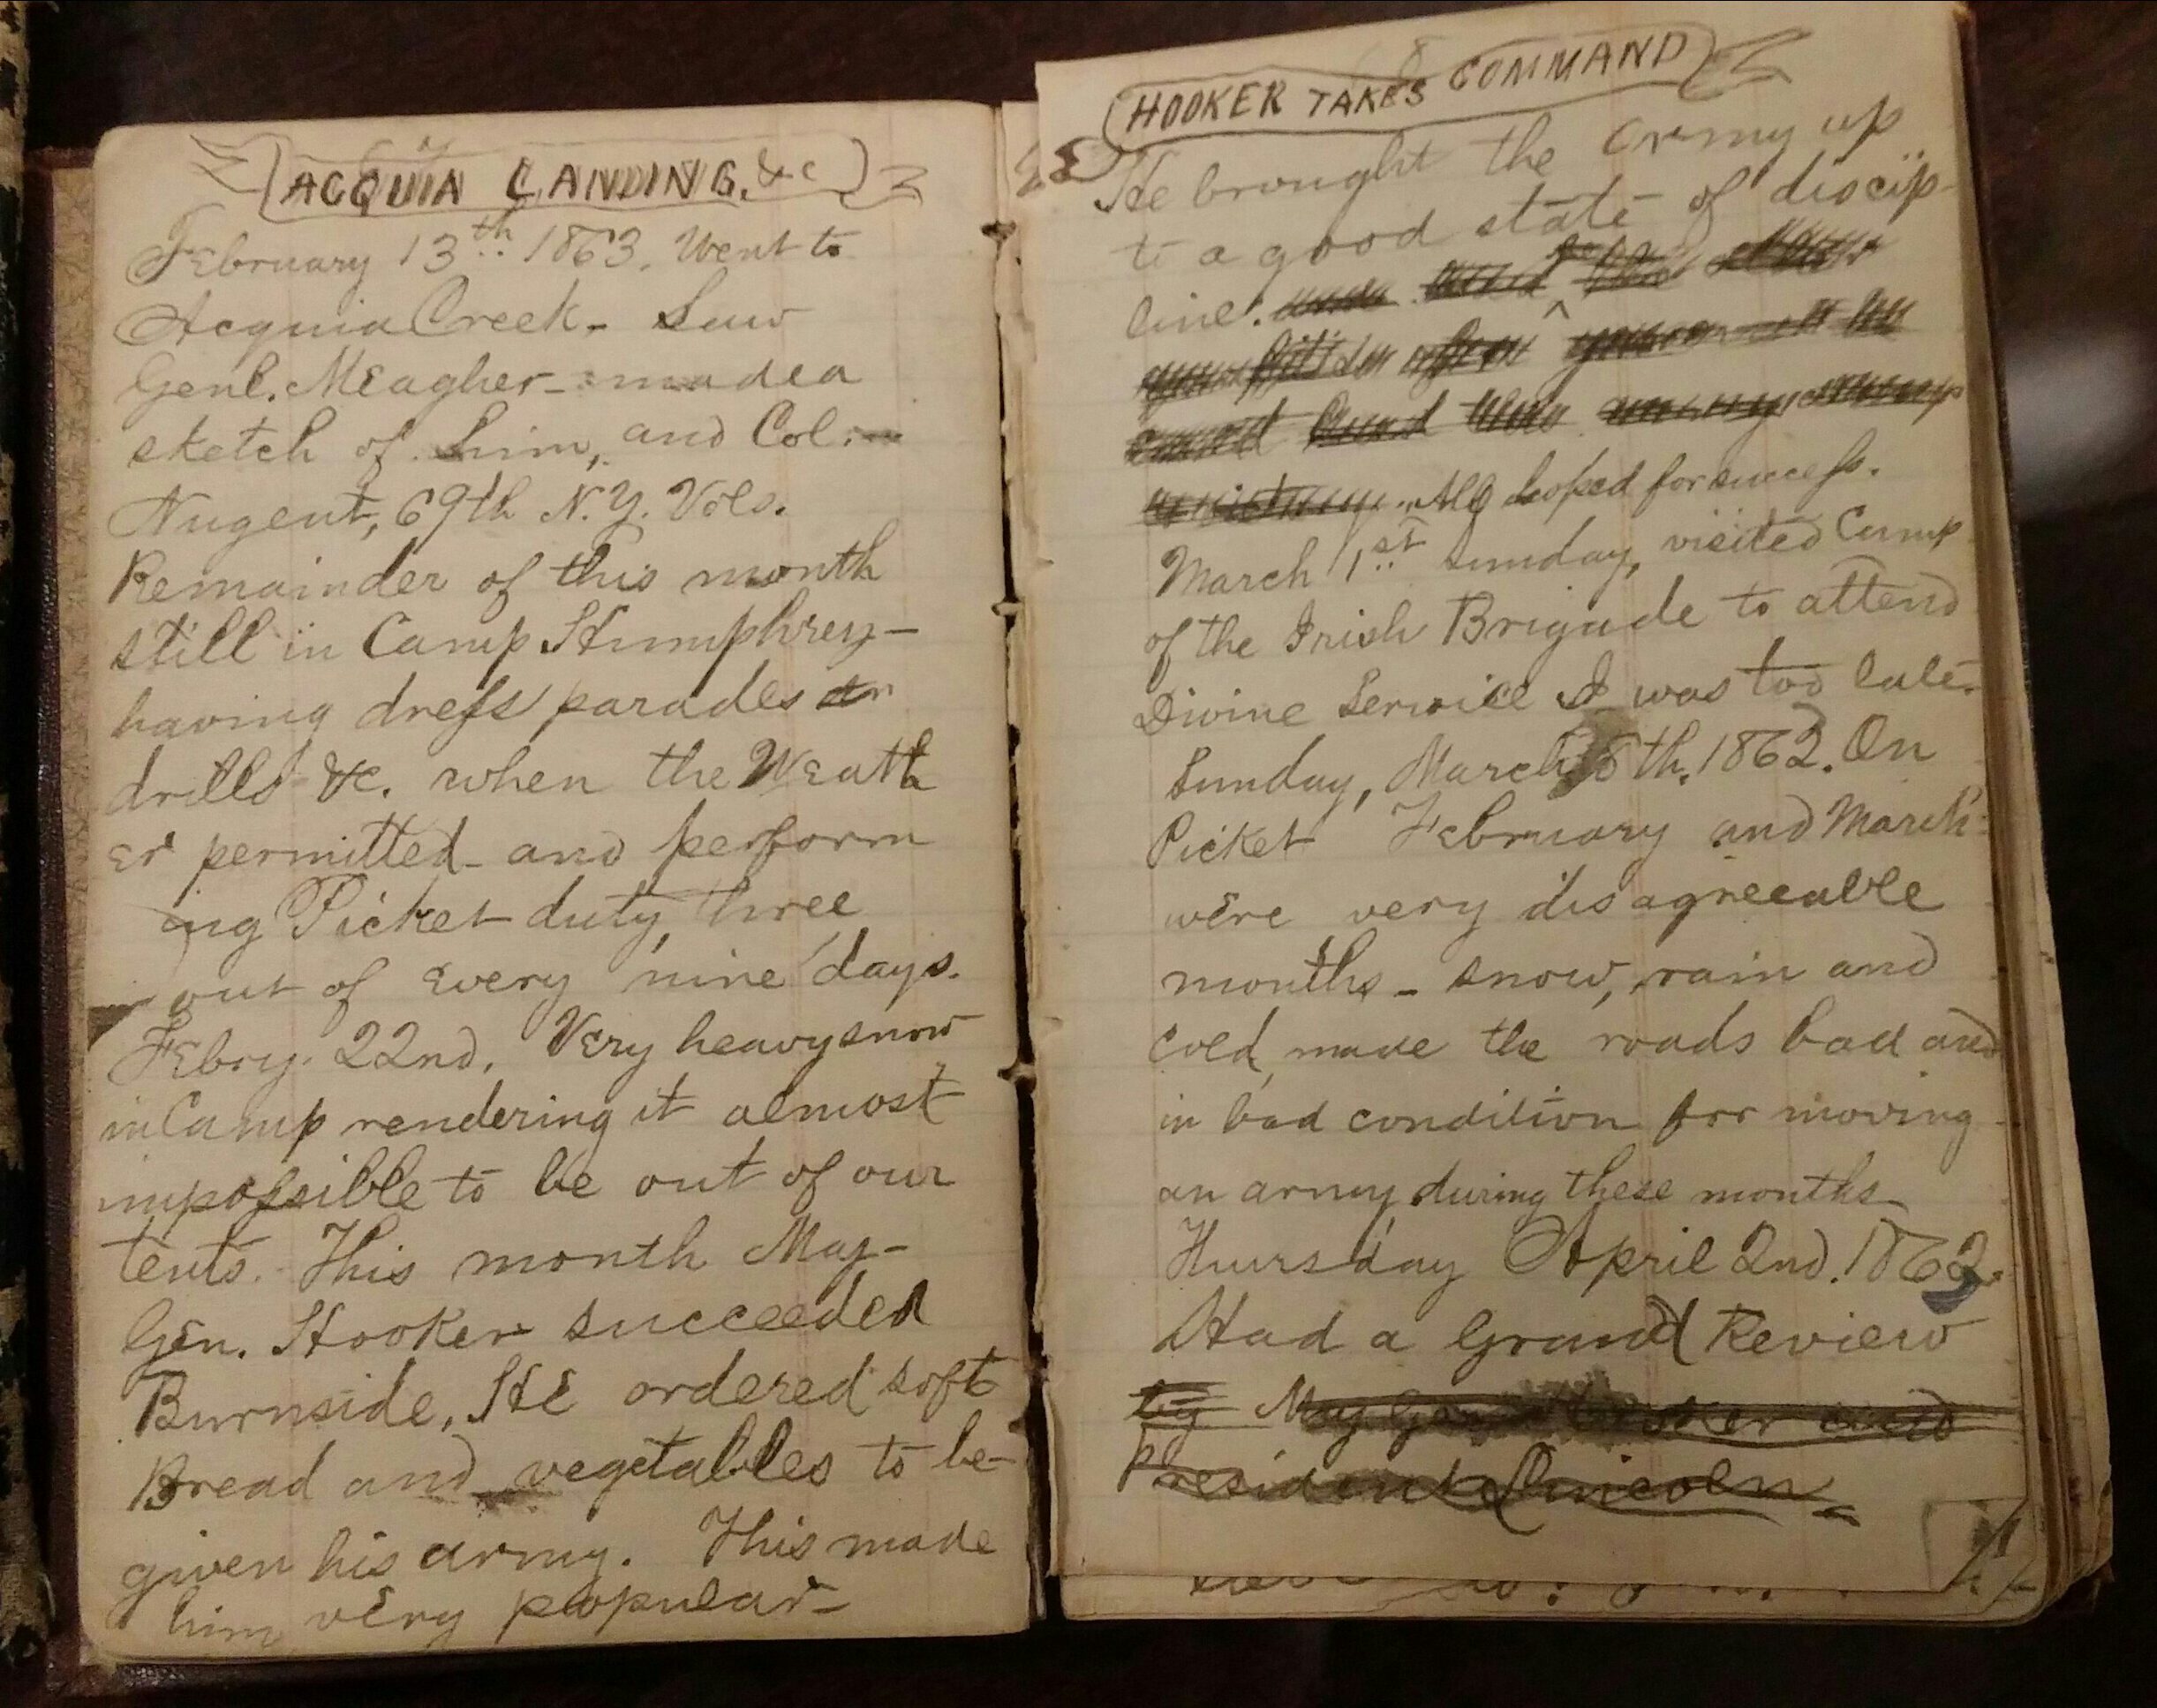 ACQUIA LANDING, &c
February 13th 1863. Went to
Acquia Creek - Saw
Genl. Meagher - made a
sketch of him, and Col.
Nugent, 69th N.Y. Vols.
Remainder of this month
still in Camp Humphrey -
having dress parades
drills &c. when the Weath
er permitted - and perform
ing Picket duty, three
out of every nine days.
Febry. 22nd. Very heavy snow
in Camp rendering it almost
impossible to be out of our
tents. This month Maj -
Gen. Hooker succeeded
Burnside, He ordered soft
Bread and vegetables to be -
given his army. This made
him very popular -
HOOKER TAKES COMMAND
He brought the army up
to a good state of discip-
line.
All hoped for success.
March 1st Sunday, visited Camp
of the Irish Brigade to attend
Divine Service I was too late.
Sunday, March 8th, 1862. On
Picket February and March
were very disagreeable
months - snow, rain and
cold, made the roads bad and
in bad condition for moving
an army during these months -
Thursday April 2nd. 1863.
Had a Grand Review
by Maj Gen Hooker and
President Lincoln